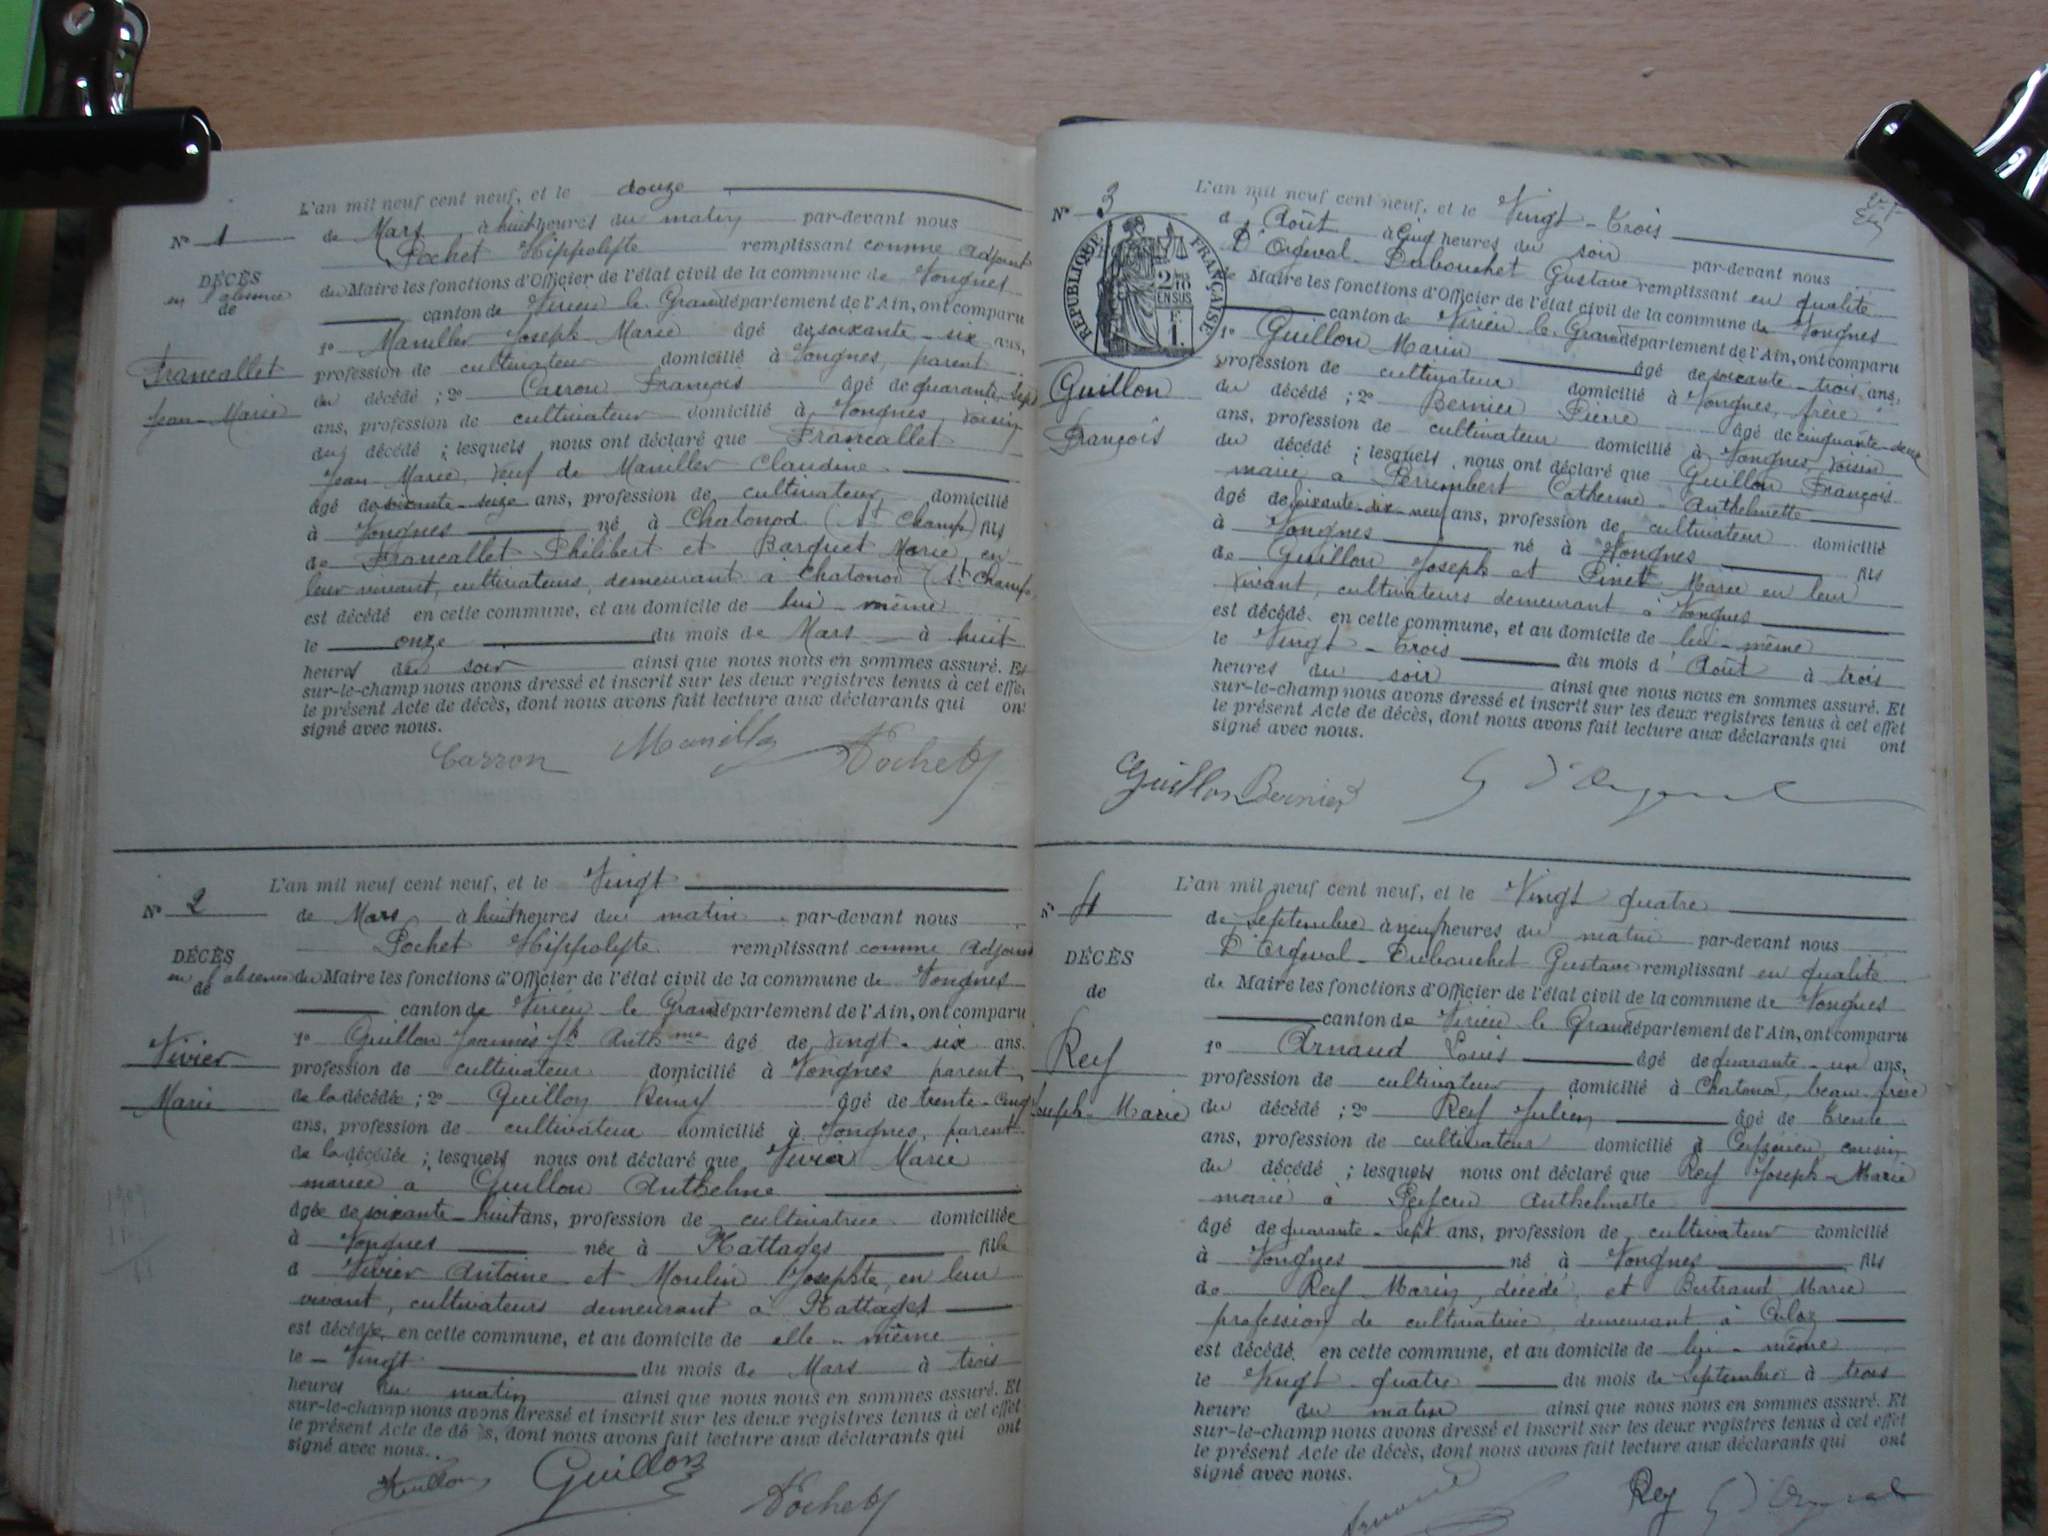 L'an mil neuf cent neuf, et le douze
Nº 1
de Mars à huit heures du matin par-devant nous
Pochet Hippolyte remplissant comme adjoint
DÉCÈS
en l'absence
de
du Maire les fonctions d'Officier de l'état civil de la commune de Vongnes
canton de Virieu le Grand département de l'Ain, ont comparu
1º Maniller Joseph Marie âgé de soixante-six ans,
Francallet
Jean-Marie
profession de cultivateur domicilié à Vongnes, parent
du décédé ; 2º Carron François âgé de quarante-sept
ans, profession de cultivateur domicilié à Vongnes, voisin
du décédé ; lesquels nous ont déclaré que Francallet
Jean Marie, veuf de Maniller Claudine
âgé de soixante-seize ans, profession de cultivateur domicilié
à Vongnes né à Chatonod (St Champ) fils
de Francallet Philibert et Barquet Marie, en
leur vivant, cultivateurs, demeurant à Chatonod (St Champ,
est décédé en cette commune, et au domicile de lui-même
le onze du mois de Mars à huit
heures du soir ainsi que nous nous en sommes assuré. Et
sur-le-champ nous avons dressé et inscrit sur les deux registres tenus à cet effet
le présent Acte de décès, dont nous avons fait lecture aux déclarants qui ont
signé avec nous.
Carron Maniller Pochet
L'an mil neuf cent neuf, et le Vingt
Nº 2
de Mars à huit heures du matin par-devant nous
Pochet Hippolyte remplissant comme adjoint
DÉCÈS
en l'absence
de
du Maire les fonctions d'Officier de l'état civil de la commune de Vongnes
canton de Virieu le Grand département de l'Ain, ont comparu
1º Guillon Joannès Anthme âgé de vingt-six ans.
Vivier
Marie
profession de cultivateur domicilié à Vongnes parent
de la décédée ; 2º Guillon Remy âgé de trente-cinq
ans, profession de cultivateur domicilié à Vongnes, parent
de la décédée ; lesquels nous ont déclaré que Vivier Marie
mariée à Guillon Anthelme
âgée de soixante-huit ans, profession de cultivatrice domiciliée
à Vongnes née à Nattages fille
d Vivier Antoine et Moulin Josephte, en leur
vivant, cultivateurs demeurant à Nattages
est décédée en cette commune, et au domicile de elle-même
le Vingt du mois de Mars à trois
heures du matin ainsi que nous nous en sommes assuré. Et
sur-le-champ nous avons dressé et inscrit sur les deux registres tenus à cet effet
le présent Acte de décès, dont nous avons fait lecture aux déclarants qui ont
signé avec nous.
Guillon Guillon Pochet
L'an mil neuf cent neuf, et le Vingt-Trois
Nº 3
RÉPUBLIQUE FRANÇAISE
2/10 EN SUS
F. 1.
d'Août à Cinq heures du soir par-devant nous
D'Orgeval-Dubouchet Gustave remplissant en qualité
de Maire les fonctions d'Officier de l'état civil de la commune de Vongnes
canton de Virieu le Grand département de l'Ain, ont comparu
1º Guillon Marin âgé de soixante-trois ans,
Guillon
François
profession de cultivateur domicilié à Vongnes, frère
du décédé ; 2º Bernier Pierre âgé de cinquante-deux
ans, profession de cultivateur domicilié à Vongnes, voisin
du décédé ; lesquels nous ont déclaré que Guillon François
marié à Perrimbert Catherine Anthelmette
âgé de soixante-dix-neuf ans, profession de cultivateur domicilié
à Vongnes né à Vongnes fils
de Guillon Joseph et Pinet Marie en leur
vivant, cultivateurs demeurant à Vongnes
est décédé en cette commune, et au domicile de lui-même
le Vingt-Trois du mois d'Août à trois
heures du soir ainsi que nous nous en sommes assuré. Et
sur-le-champ nous avons dressé et inscrit sur les deux registres tenus à cet effet
le présent Acte de décès, dont nous avons fait lecture aux déclarants qui ont
signé avec nous.
Guillon Bernier G d'Orgeval
L'an mil neuf cent neuf, et le Vingt quatre
Nº 4
de Septembre à neuf heures du matin par-devant nous
D'Orgeval-Dubouchet Gustave remplissant en qualité
DÉCÈS
de
de Maire les fonctions d'Officier de l'état civil de la commune de Vongnes
canton de Virieu le Grand département de l'Ain, ont comparu
1º Arnaud Louis âgé de quarante-un ans,
Rey
Joseph-Marie
profession de cultivateur domicilié à Chatonod, beau-frère
du décédé ; 2º Rey Julien âgé de trente
ans, profession de cultivateur domicilié à Ceyzérieu, cousin
du décédé ; lesquels nous ont déclaré que Rey Joseph-Marie
marié à Anthelmette
âgé de quarante-sept ans, profession de cultivateur domicilié
à Vongnes né à Vongnes fils
de Rey Marin, décédé, et Bertrand Marie
profession de cultivatrice, demeurant à Culoz
est décédé en cette commune, et au domicile de lui-même
le Vingt-quatre du mois de Septembre à trois
heure du matin ainsi que nous nous en sommes assuré. Et
sur-le-champ nous avons dressé et inscrit sur les deux registres tenus à cet effet
le présent Acte de décès, dont nous avons fait lecture aux déclarants qui ont
signé avec nous.
Arnaud Rey G d'Orgeval